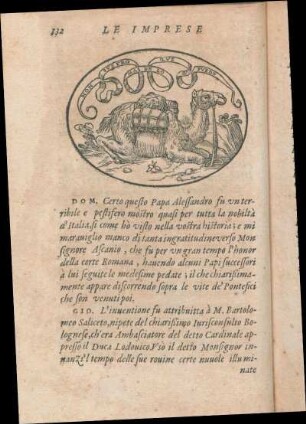 132 LE IMPRESE
NON SVEFRO PIV
DON. Certo questo Papa Alessandro fu vn ter-
ribile e pestifero mostro quasi per tutta la nobiltà
d'Italia, si come hò visto nella vostra historia; e mi
marauiglio manco di tanta ingratitudine verso Mon
signore Ascanio, che fu per vn gran tempo l'honor
della corte Romana, hauendo alcuni Papi successori
à lui seguite le medesime pedate; il che chiarissima-
mente appare discorrendo sopra le vite de' Pontefici
che son venuti poi.
GIO. L'inuentione fu attribuitta à M. Bartolo-
meo Saliceto, nipote del chiarissimo Iurisconsulto Bo-
lognese, ch'era Ambasciatore del detto Cardinale ap-
presso il Duca Lodouico. Vsò il detto Monsignor in-
nanzi'l tempo delle sue rouine certe nuuole illumi
nate